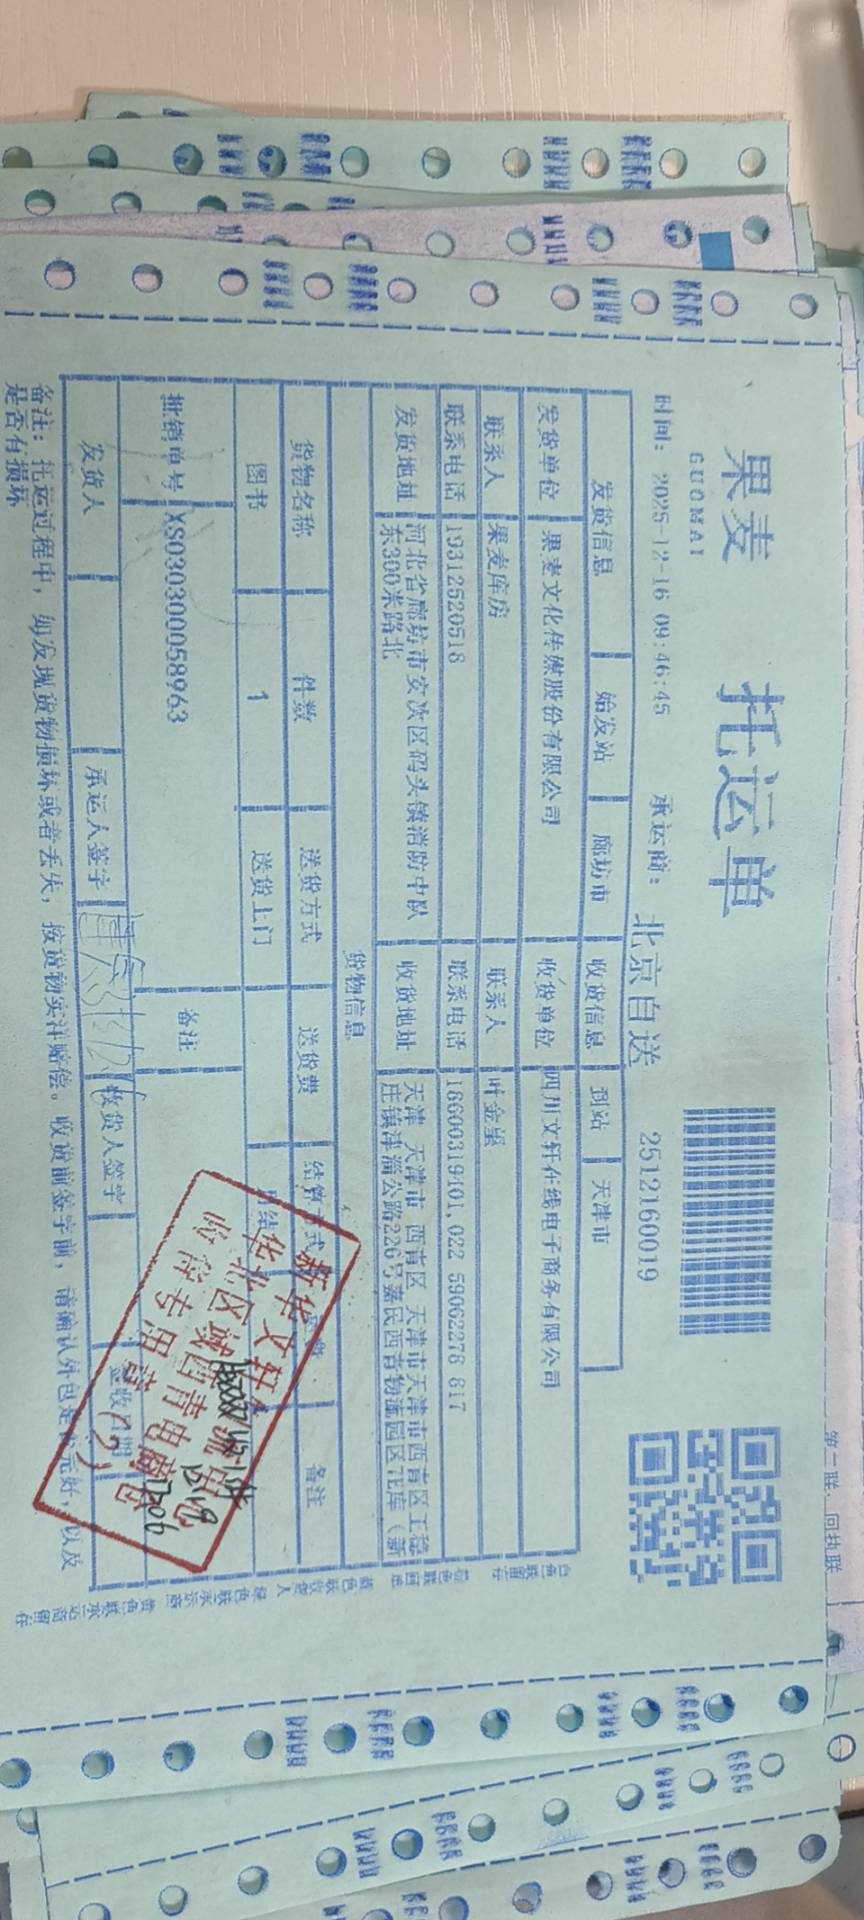 果麦
GUOMAI
托运单
第二联：回执联
时间： 2025-12-16 09:46:45
承运商： 北京自送
2512160019
发货信息 始发站 廊坊市 收货信息 到站 天津市
发货单位 果麦文化传媒股份有限公司 收货单位 四川文轩在线电子商务有限公司
联系人 果麦库房 联系人 叶金玺
联系电话 19312520518 联系电话 18600319401,022 59062276 817
发货地址 河北省廊坊市安次区码头镇消防中队东300米路北 收货地址 天津 天津市 西青区 天津市天津市西青区王稳庄镇津淄公路226号嘉民西青物流园区 库（新
货物信息
货物名称 件数 送货方式 送货费 结算方式 备注
图书 1 送货上门 月结
批销单号 XS030300058963 备注
发货人 承运人签字 收货人签字 签收日期
备注：托运过程中，如发现货物损坏或者丢失，按货物实洋赔偿。收货前签字前，请确认外包是否完好，以及
是否有损坏
新华文轩
华北区域图书电商仓
收货专用章
(2)